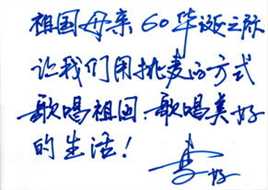 祖国母亲60华诞之际
让我们用挑麦的方式
歌唱祖国，歌唱美好
的生活！
李好